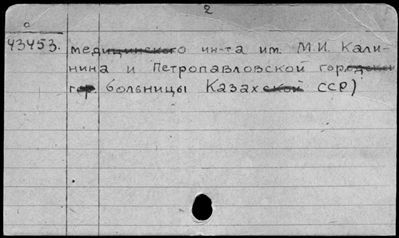 2
0
43453. медицинского ин-та им. М.И. Кали-
нина и Петропавловской городской
гор. больницы Казахской ССР)